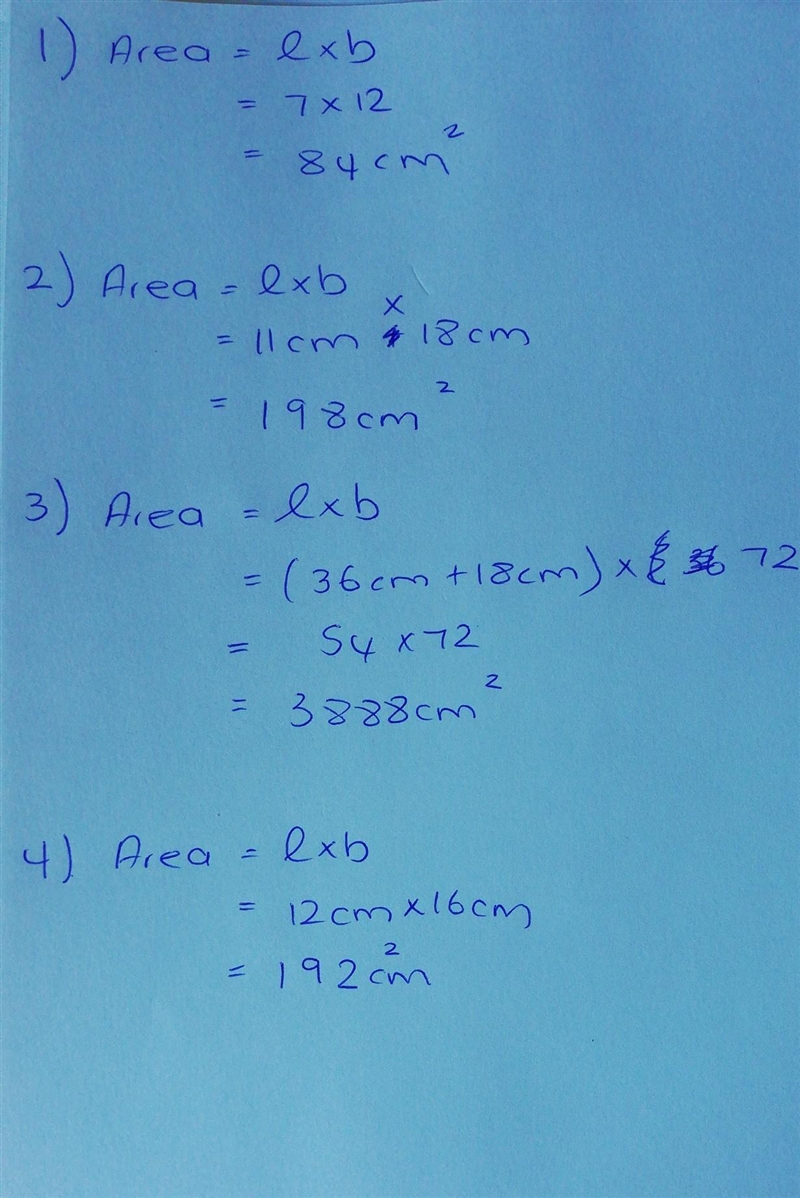 1) Area = l×b
= 7×12
= 84cm²
2) Area = l×b
= 11cm × 18cm
= 198cm²
3) Area = l×b
= (36cm+18cm)× 72
= 54×72
= 3888cm²
4) Area = l×b
= 12cm×16cm
= 192cm²